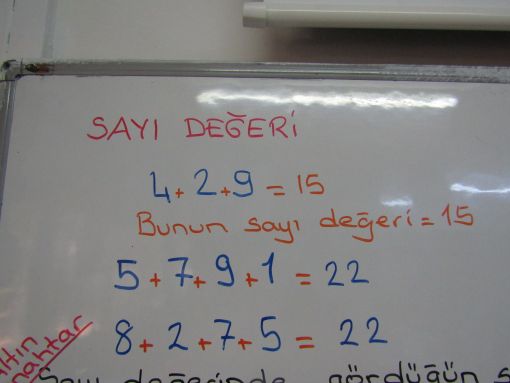 SAYI DEĞERİ
4+2+9=15
Bunun sayı değeri=15
5+7+9+1=22
8+2+7+5=22
Sayı değerinde gördüğün